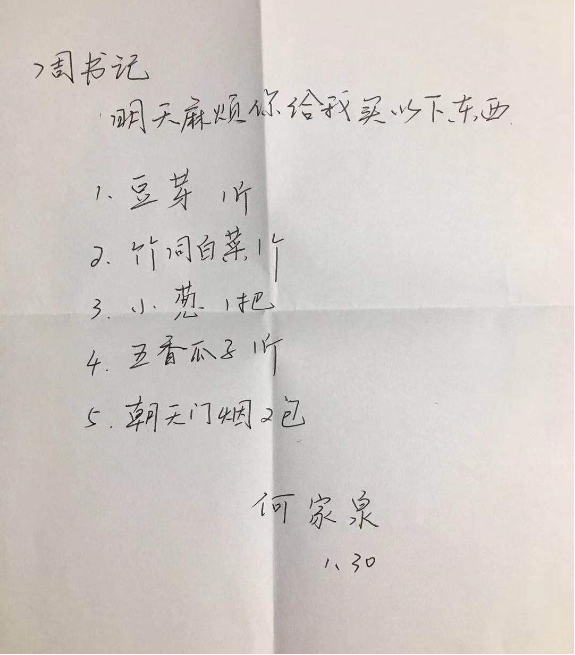 周书记
明天麻烦你给我买以下东西
1. 豆芽 1斤
2. 竹同白菜1个
3. 小葱 1把
4. 五香瓜子1斤
5. 朝天门烟2包
何家泉
1、30